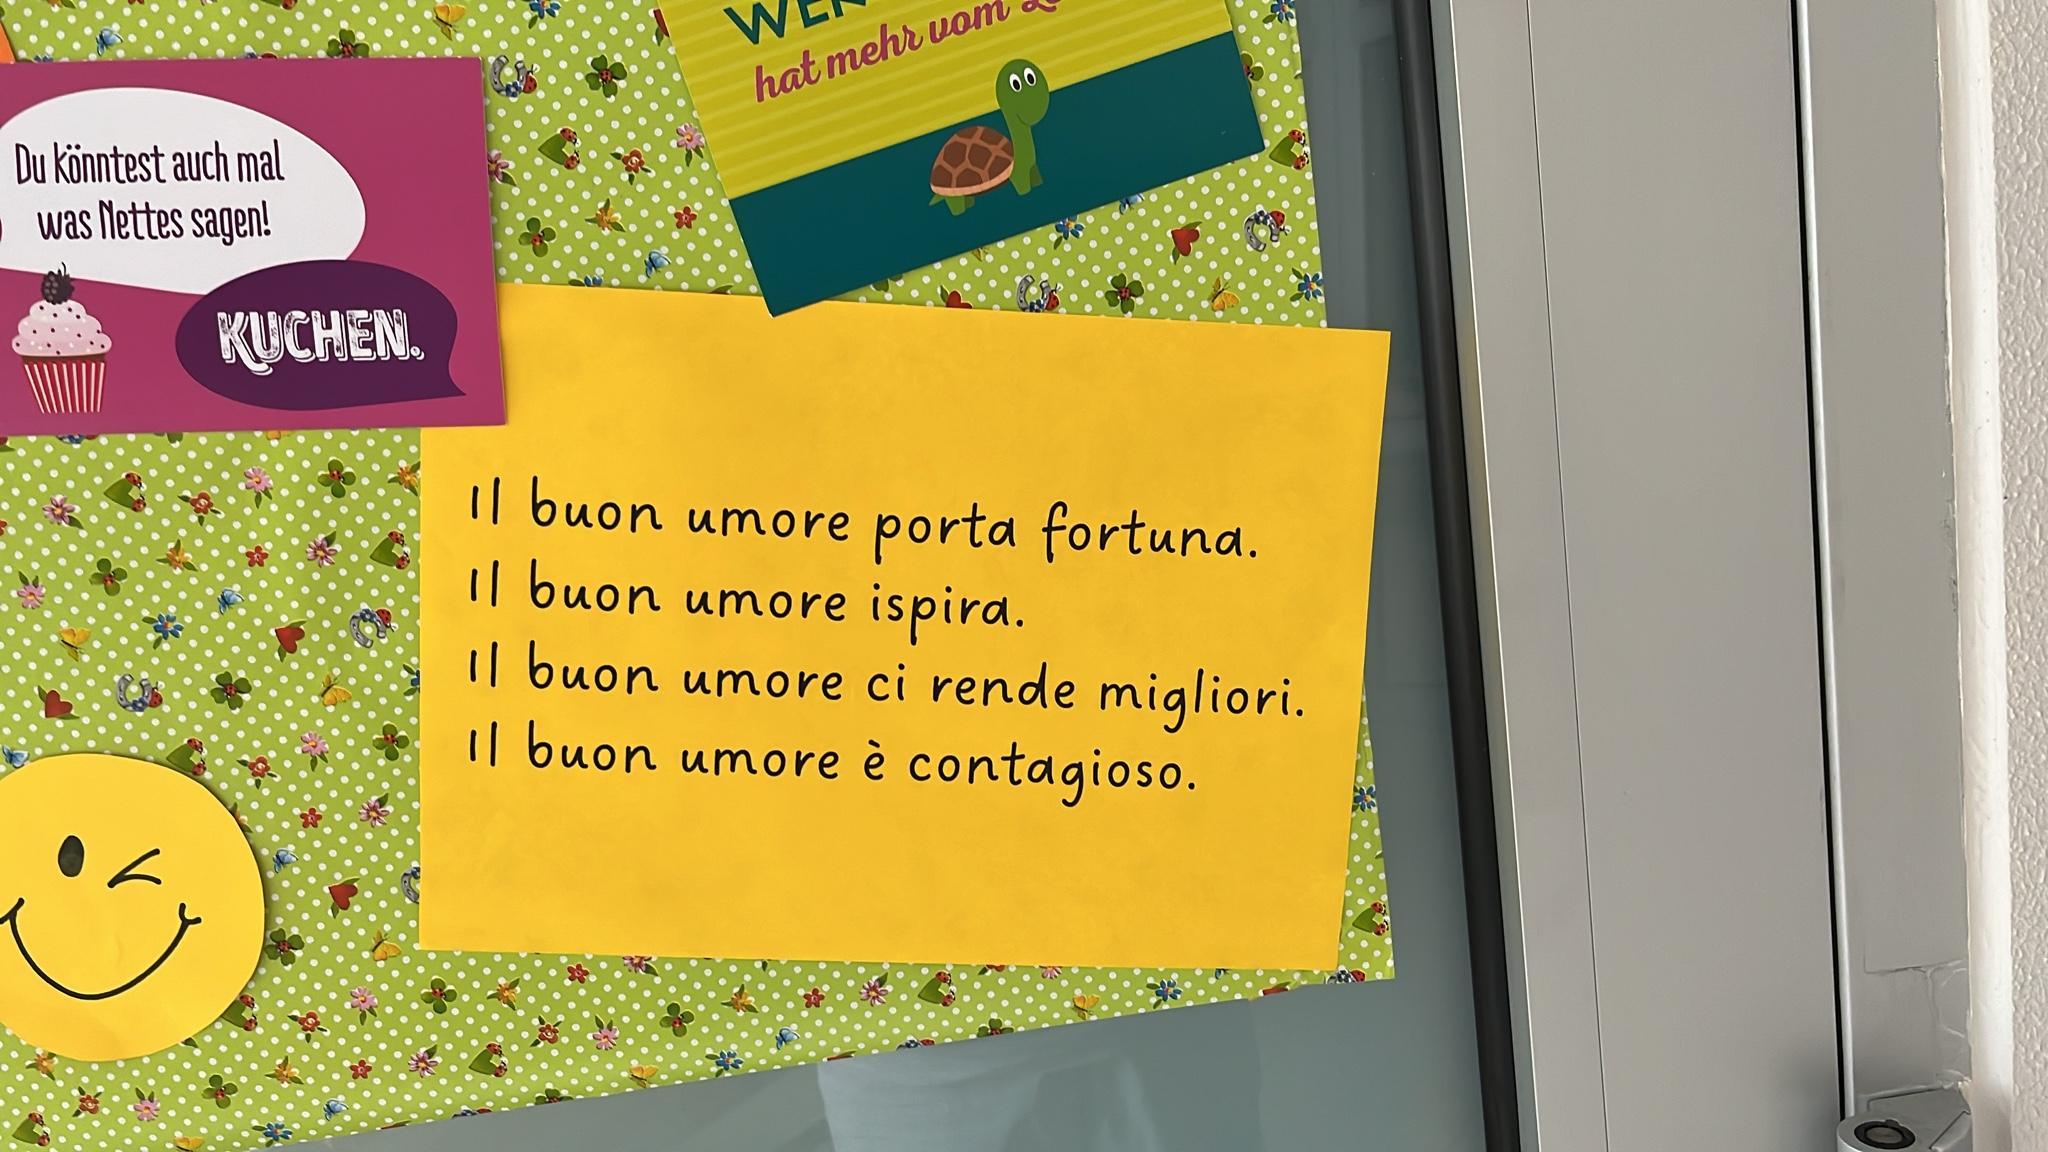 hat mehr vom
Du könntest auch mal
was Nettes sagen!
KUCHEN.
Il buon umore porta fortuna.
Il buon umore ispira.
Il buon umore ci rende migliori.
Il buon umore è contagioso.